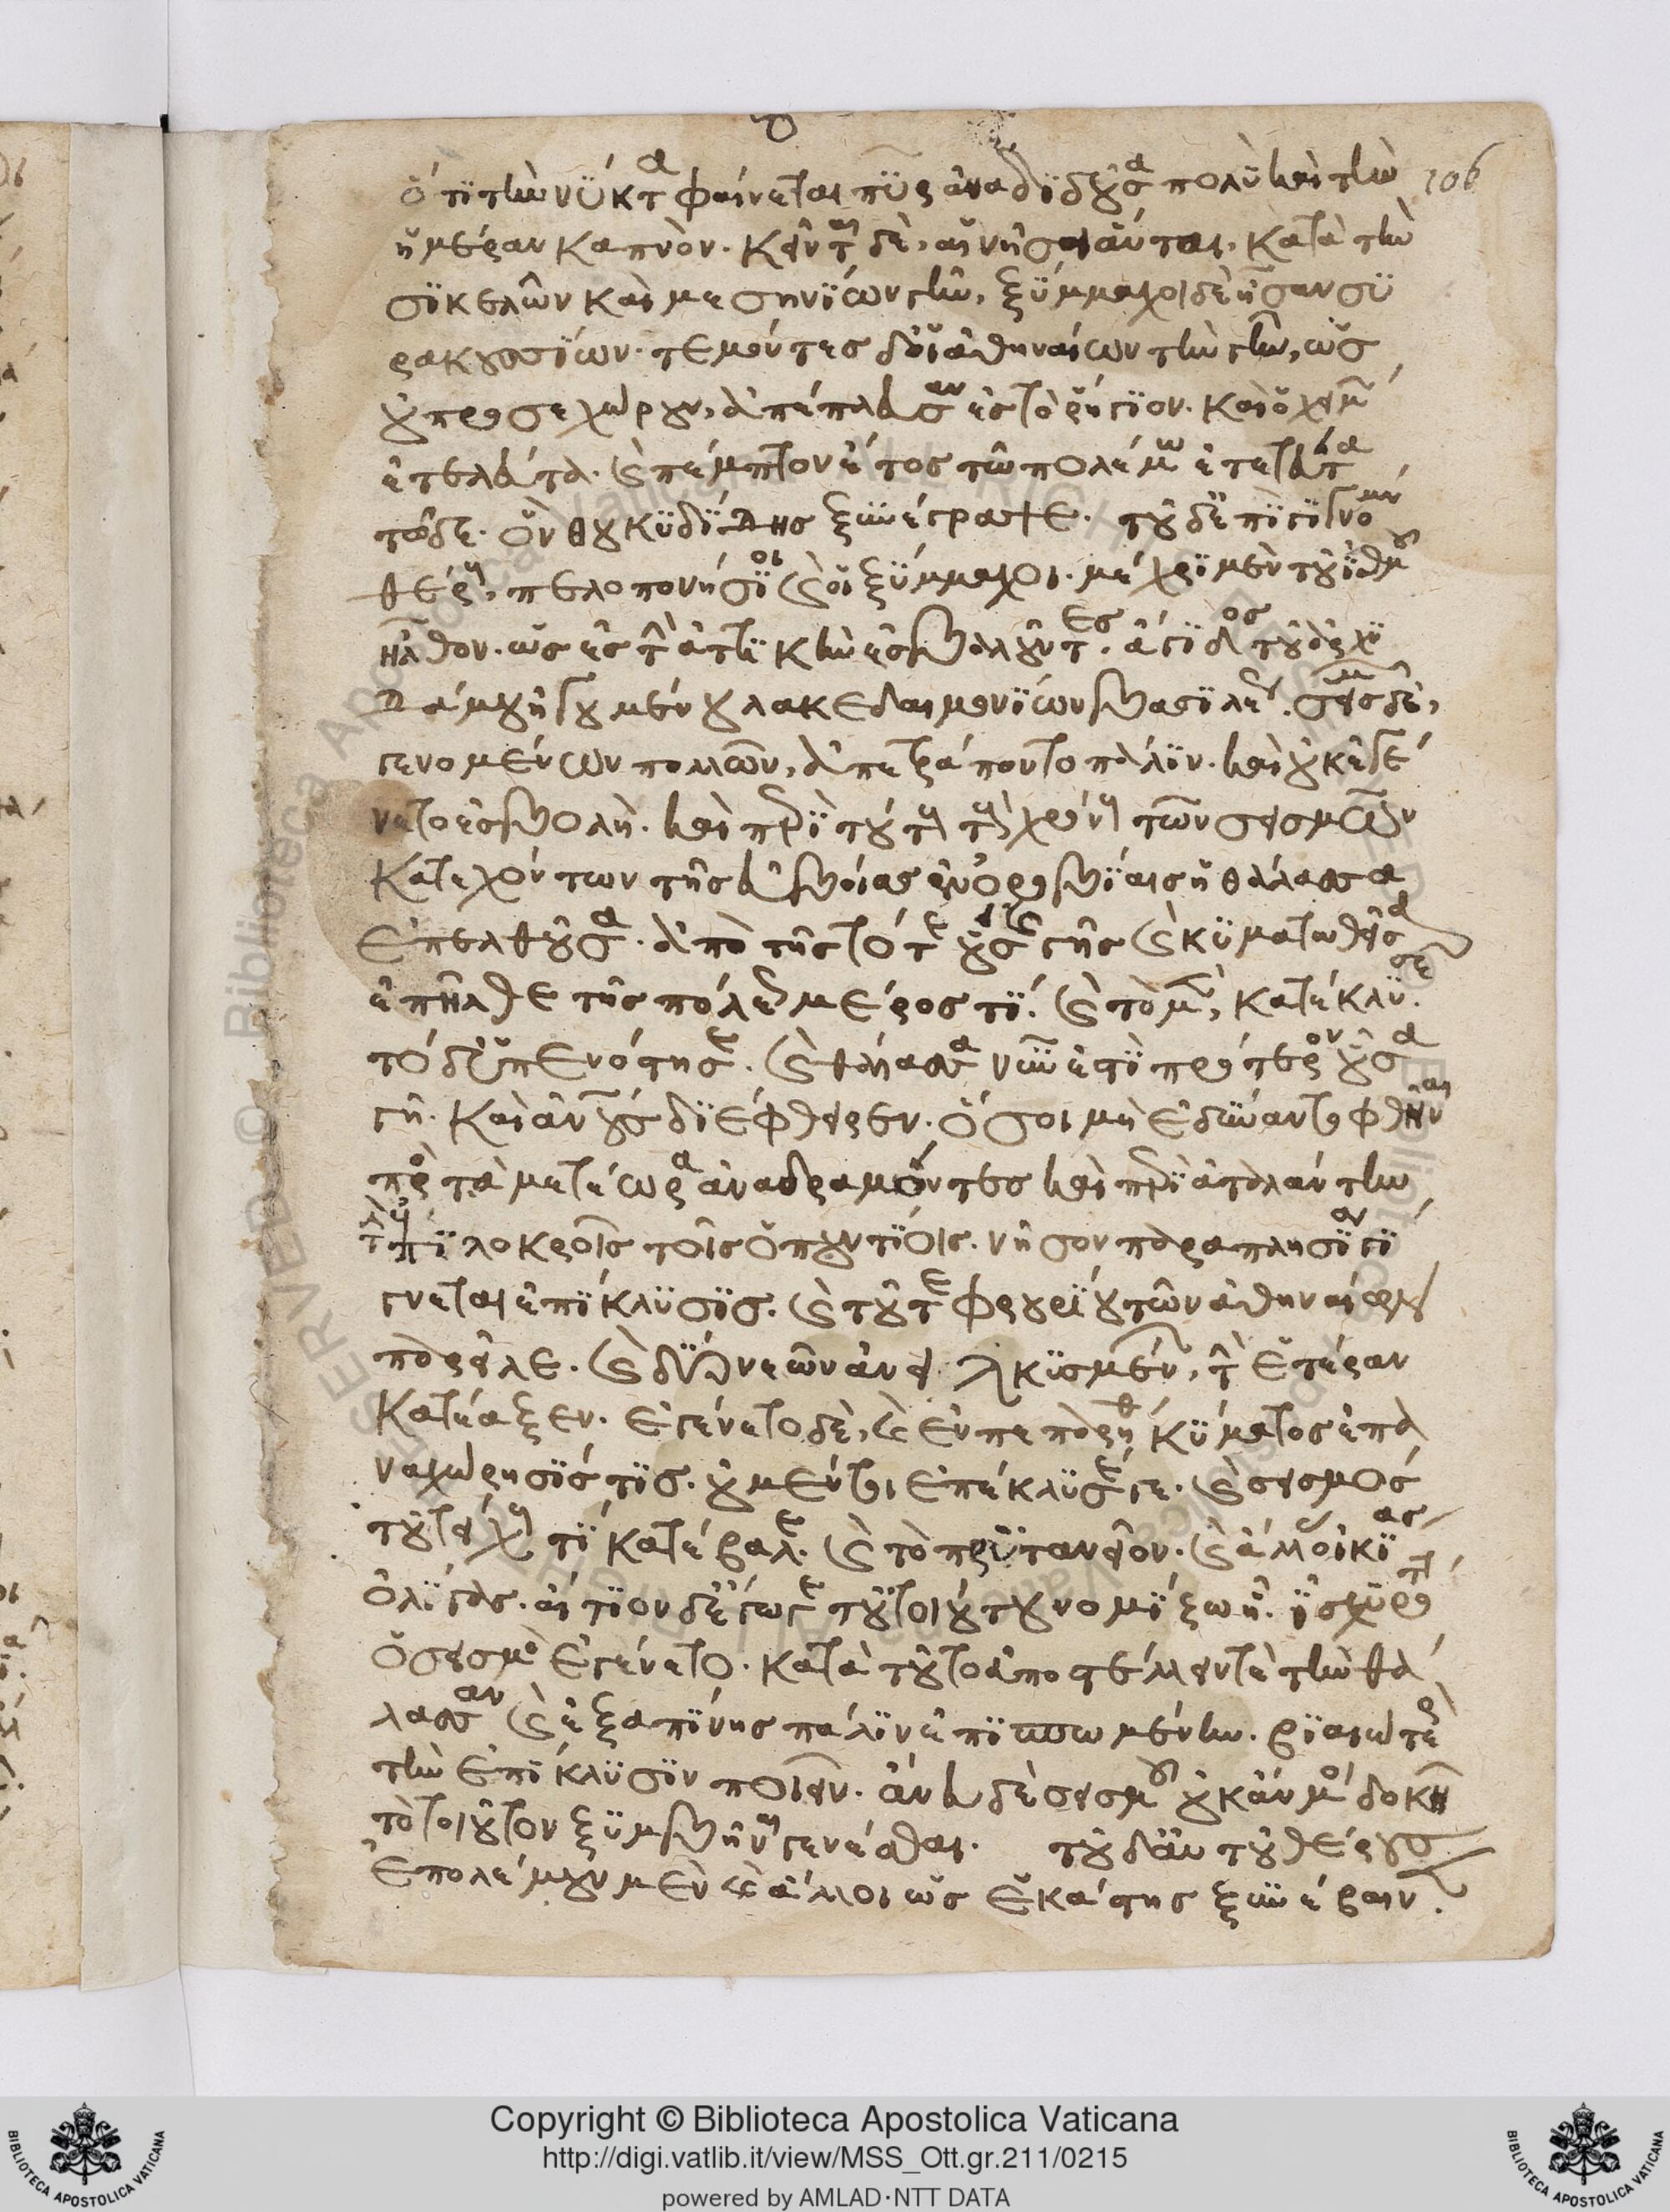 106
ὅτι τὴν νύκτα φαίνεται πῦρ ἀναδιδοῦσα πολὺ καὶ τὴν
ἡμέραν καπνόν. κεῖνται δὲ, αἱ νῆσοι αὗται, κατὰ τὴν
σικελῶν καὶ μεσηνίων γῆν, ξύμμαχοι δὲ ἦσαν συ
ρακουσίων. τεμόντες δ' οἱ ἀθηναίων τὴν γῆν, ὡς
οὐ προσεχώρουν, ἀπέπλευσαν ἐς τὸ ῥήγιον. καὶ ὁ χειμὼν
ἐτελεύτα. καὶ πέμπτον ἔτος τῶ πολέμω ἐτελεύτα
τῶδε. ὃν θουκυδίδης ξυνέγραψε. τοῦ δ' ἐπιγιγνομένου
θέρους, πελοπονήσιοι καὶ οἱ ξύμμαχοι. μέχρι μὲν τοῦ ἰσθμοῦ
ἦλθον. ὡς ἐς τὴν ἀττικὴν ἐσβαλοῦντες. ἄγιδος τοῦ ἀρχι
δάμου ἡγουμένου λακεδαιμονίων βασιλέως. σεισμῶν δὲ,
γενομένων πολλῶν, ἀπετράποντο πάλιν. καὶ οὐκ ἐγέ
νετο ἐσβολή. καὶ περὶ τούτους τοὺς χρόνους τῶν σεισμῶν
κατεχόντων τῆς εὐβοίας ἐν ὀροβίαις ἡ θάλασσα
ἐπελθοῦσα. ἀπὸ τῆς τότε οὔσης γῆς καὶ κυματωθεῖσα
ἐπῆλθε τῆς πόλεως μέρος τι. καὶ τὸ μὲν, κατέκλυσε.
τὸ δ' ὑπενόστησε. καὶ θάλασσα νῦν ἐστι πρότερον οὖσα
γῆ. καὶ ἀνθρώπους διέφθειρεν. ὅσοι μὴ ἐδύναντο φθῆναι
πρὸς τὰ μετέωρα ἀναδραμόντες καὶ περὶ ἀταλάντην
τὴν ἐπὶ λοκροῖς τοῖς ὀπουντίοις. νῆσον παραπλησία γί
γνεται ἐπίκλυσις. καὶ τοῦ τε φρουρίου τῶν ἀθηναίων
παρεῖλε. καὶ δύο νεῶν ἀνειλκυσμένων, τὴν ἑτέραν
κατέαξεν. ἐγένετο δὲ, καὶ ἐν πεπαρήθω κύματος ἐπα
ναχώρησίς τις. οὐ μέντοι ἐπέκλυσέ γε. καὶ σεισμὸς
τοῦ τείχους τι κατέβαλε. καὶ τὸ πρυτανεῖον. καὶ ἄλλας οἰκίας
ὀλίγας. αἴτιον δ' ἔγωγε τοῦ τοιούτου νομίζω ᾗ. ἰσχυρότατος
ὁ σεισμὸς ἐγένετο. κατὰ τοῦτο ἀποστέλλειν τε τὴν θά
λασσαν καὶ ἐξαπίνης πάλιν ἐπισπωμένην. βιαιότερον
τὴν ἐπίκλυσιν ποιεῖν. ἄνευ δὲ σεισμοῦ οὐκ ἄν μοι δοκῆ
τὸ τοιοῦτον ξυμβῆναι γενέσθαι. τοῦ δ' αὐτοῦ θέρους
ἐπολέμουν μὲν καὶ ἄλλοι ὡς ἑκάστης ξυνέβαινεν.
Copyright © Biblioteca Apostolica Vaticana
http://digi.vatlib.it/view/MSS_Ott.gr.211/0215
powered by AMLAD·NTT DATA
BIBLIOTECA APOSTOLICA VATICANA
BIBLIOTECA APOSTOLICA VATICANA